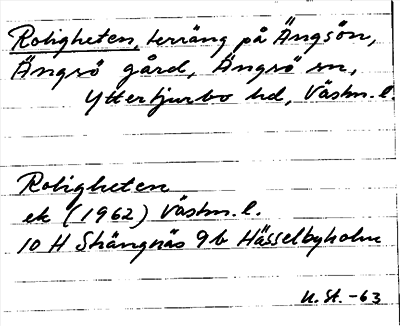 Roligheten, terräng på Ängsön,
Ängsö gård, Ängsö sn,
Yttertjurbo hd, Västm. l.
Roligheten
ek (1962) Västm. l.
10 H Strängnäs 9b Hässelbyholm
U. St. -63